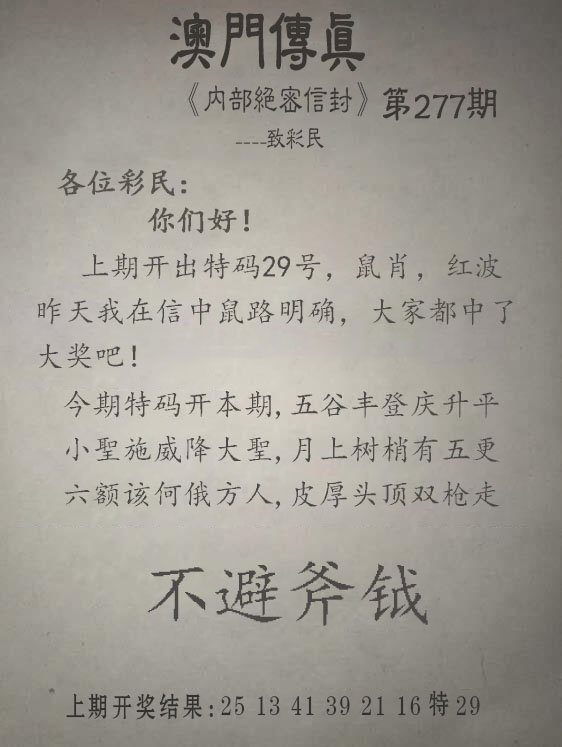 澳門傳眞
《内部絕密信封》第277期
----致彩民
各位彩民：
你们好！
上期开出特码29号，鼠肖，红波
昨天我在信中鼠路明确，大家都中了
大奖吧！
今期特码开本期,五谷丰登庆升平
小聖施威降大聖,月上树梢有五更
六额该何俄方人,皮厚头顶双枪走
不避斧钺
上期开奖结果:25 13 41 39 21 16 特 29